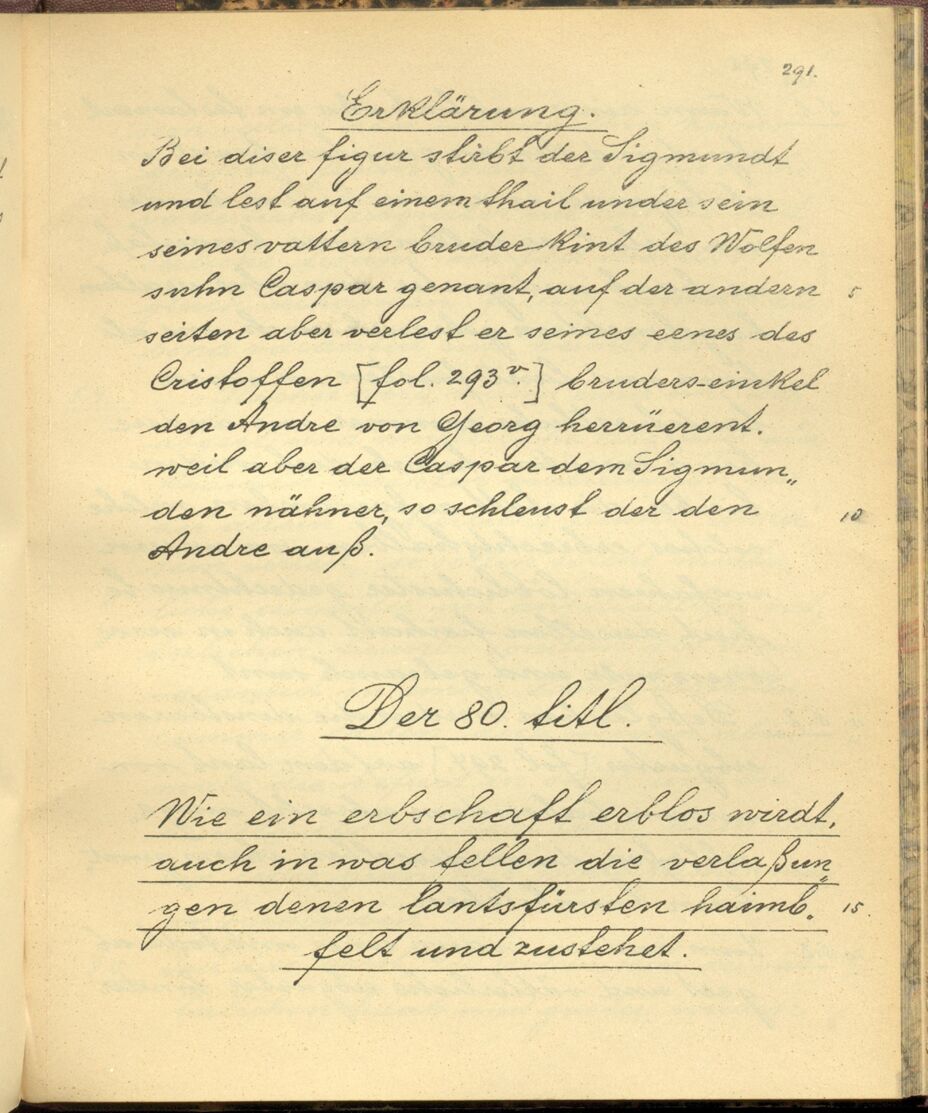 291.
Erklärung.
Bei diser figur stirbt der Sigmundt
und lest auf einem thail under sein
seines vattern bruder kint des Wolfen
suhn Caspar genant, auf der andern 5
seiten aber verlest er seines eenes des
Cristoffen [fol. 293v.] bruders-einkel
den Andre von Georg herrüerent.
weil aber der Caspar dem Sigmun„
den nähner, so schleust der den 10
Andre auß.
Der 80. titl.
Wie ein erbschaft erblos wirdt,
auch in was fellen die verlaßun„
gen denen lantsfürsten haimb„ 15.
felt und zustehet.